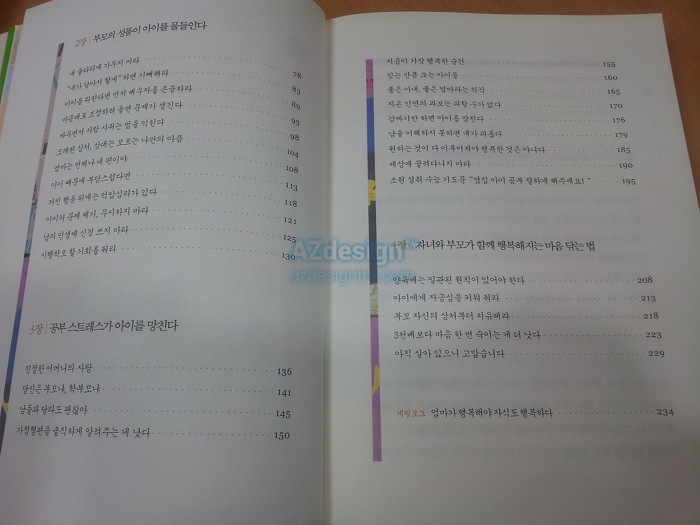 2장 | 부모의 성품이 아이를 물들인다
내 울타리에 가두지 마라 78
"내가 알아서 할게" 하면 기뻐해라 83
아이를 위한다면 먼저 배우자를 존중하라 85
마음대로 조정하려 들면 문제가 생긴다 89
싸우면서 사람 사귀는 법을 익힌다 93
오래된 상처, 상대는 모르는 나만의 아픔 98
엄마는 언제나 네 편이야 104
아이 때문에 부담스럽다면 108
거친 행동 뒤에는 억압심리가 있다 113
아이의 문제 제기, 무시하지 마라 118
남의 인생에 신경 쓰지 마라 121
시행착오 할 기회를 줘라 125
130
3장 | 공부 스트레스가 아이를 망친다
진정한 어머니의 사랑 136
당신은 부모냐, 학부모냐 141
남들과 달라도 괜찮아 145
가정형편을 솔직하게 알려주는 게 낫다 150
지금이 가장 행복한 순간 155
믿는 만큼 크는 아이들 160
좋은 아내, 좋은 엄마라는 착각 165
지은 인연의 과보는 피할 수가 없다 170
감싸기만 하면 아이를 망친다 176
남을 이해하지 못하면 내가 괴롭다 179
원하는 것이 다 이루어져야 행복한 것은 아니다 185
세상에 끌려다니지 마라 190
소원 성취 수능 기도문 "옆집 아이 공부 잘하게 해주세요!" 195
장 | 자녀와 부모가 함께 행복해지는 마음 닦는 법
양육에는 일관된 원칙이 있어야 한다 208
아이에게 자긍심을 키워 줘라 213
부모 자신의 상처부터 치유해라 218
3천배보다 마음 한 번 숙이는 게 더 낫다 223
아직 살아 있으니 고맙습니다 229
에필로그 엄마가 행복해야 자식도 행복하다 234
AZdesign